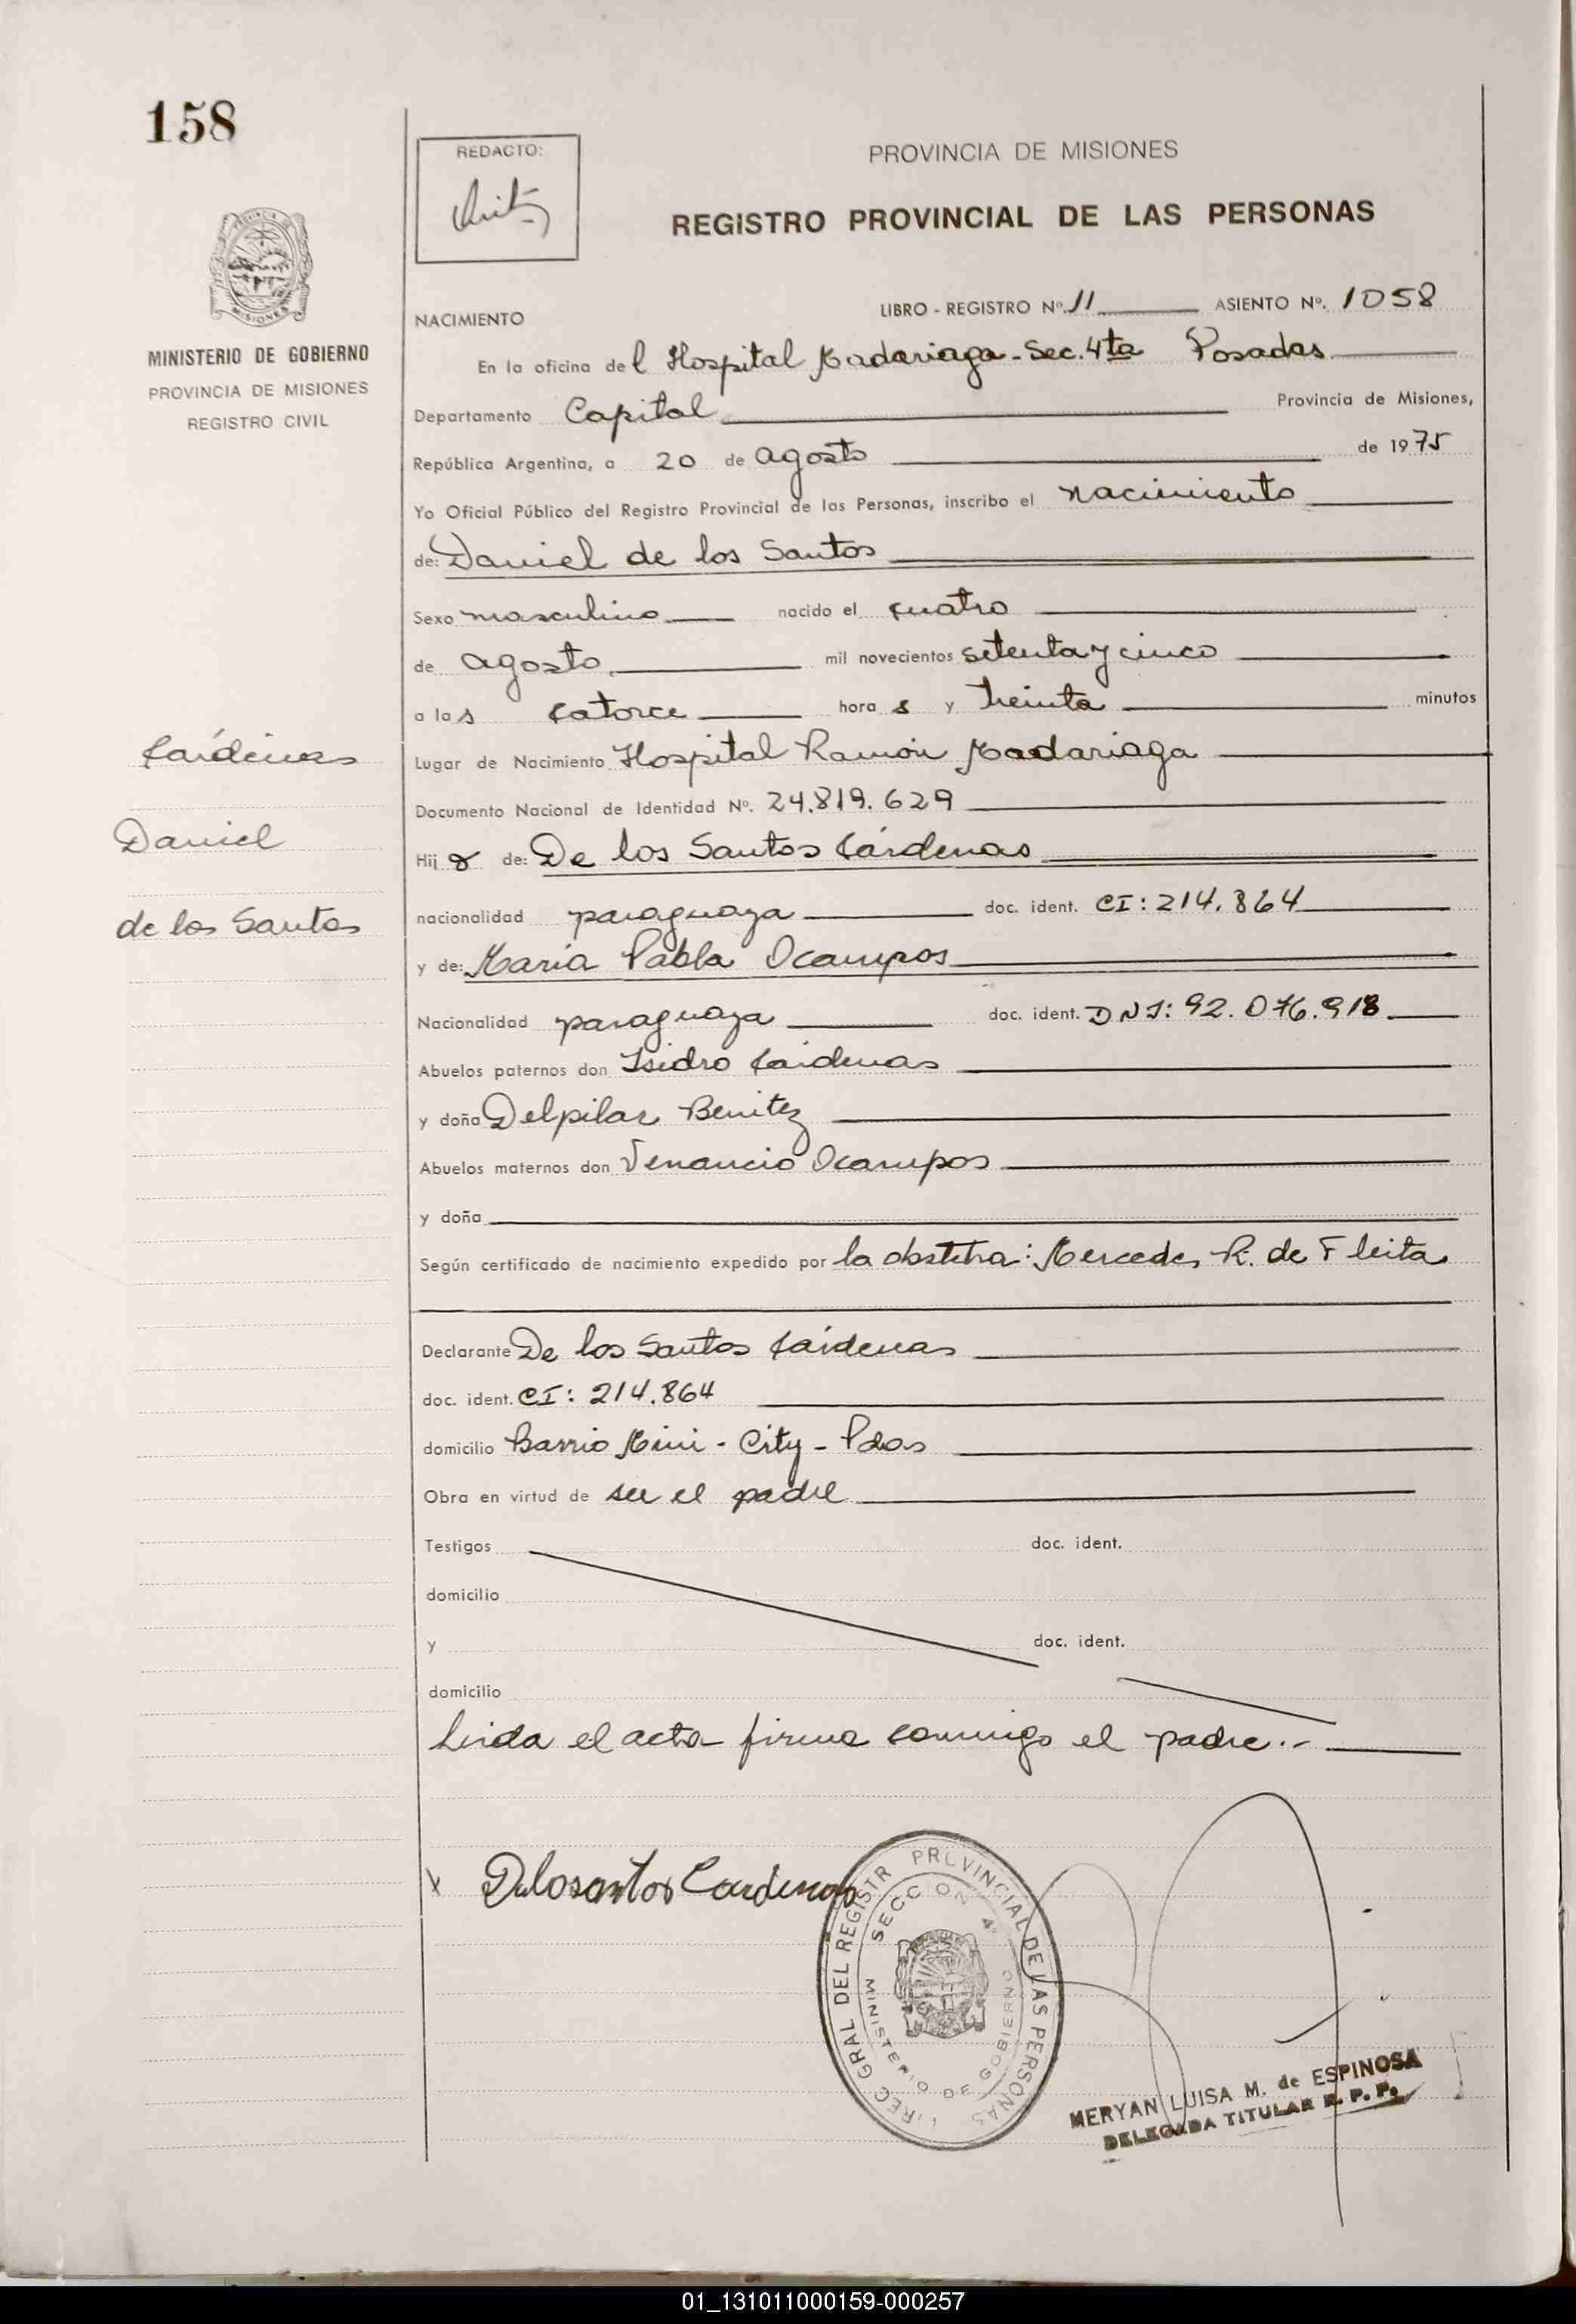 158
REDACTO:
PROVINCIA DE MISIONES
REGISTRO PROVINCIAL DE LAS PERSONAS
MINISTERIO DE GOBIERNO
PROVINCIA DE MISIONES
REGISTRO CIVIL
NACIMIENTO
LIBRO - REGISTRO Nº. 11 ASIENTO Nº. 1058
En la oficina del Hospital Madariaga - Sec. 4ta Posadas
Departamento Capital Provincia de Misiones,
República Argentina, a 20 de agosto de 1975
Yo Oficial Público del Registro Provincial de las Personas, inscribo el nacimiento
de: Daniel de los Santos
Sexo masculino nacido el cuatro
de agosto mil novecientos setenta y cinco
a las catorce horas y treinta minutos
Cárdenas
Daniel
de los Santos
Lugar de Nacimiento Hospital Ramón Madariaga
Documento Nacional de Identidad Nº. 24.819.629
Hijo de: De los Santos Cárdenas
nacionalidad paraguaya doc. ident. CI: 214.864
y de: María Pabla Ocampos
Nacionalidad paraguaya doc. ident. DNI: 92.076.918
Abuelos paternos don Isidro Cárdenas
y doña Delpilar Benitez
Abuelos maternos don Venancio Ocampos
y doña
Según certificado de nacimiento expedido por la obstetra: Mercedes R. de Fleita
Declarante De los Santos Cárdenas
doc. ident. CI: 214.864
domicilio Barrio Mini - City - Pdas
Obra en virtud de ser el padre
Testigos doc. ident.
domicilio
y doc. ident.
domicilio
Leída el acta firma conmigo el padre.-
x Delosantos Cardenas
DIREC GRAL DEL REGISTR PROVINCIAL DE LAS PERSONAS
SECCION 4º
MINISTERIO DE GOBIERNO
MERYAN LUISA M. de ESPINOSA
DELEGADA TITULAR R. P. P.
01_131011000159-000257